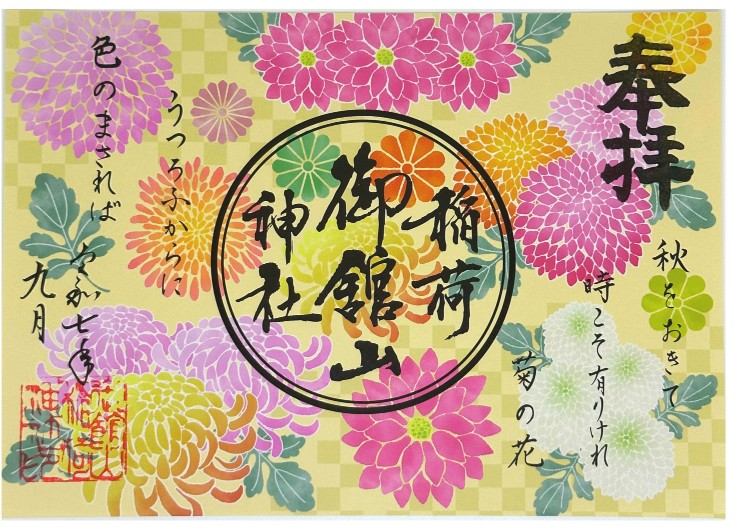 奉拝
秋をおきて
時こそ有りけれ
菊の花
稲荷
御館山
神社
うつろふからに
色のまされば
令和七年
九月
御館山
稲荷
神社印